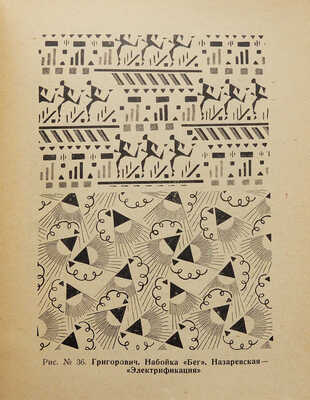 Рис. № 36. Григорович. Набойка «Бег». Назаревская—
«Электрификация»